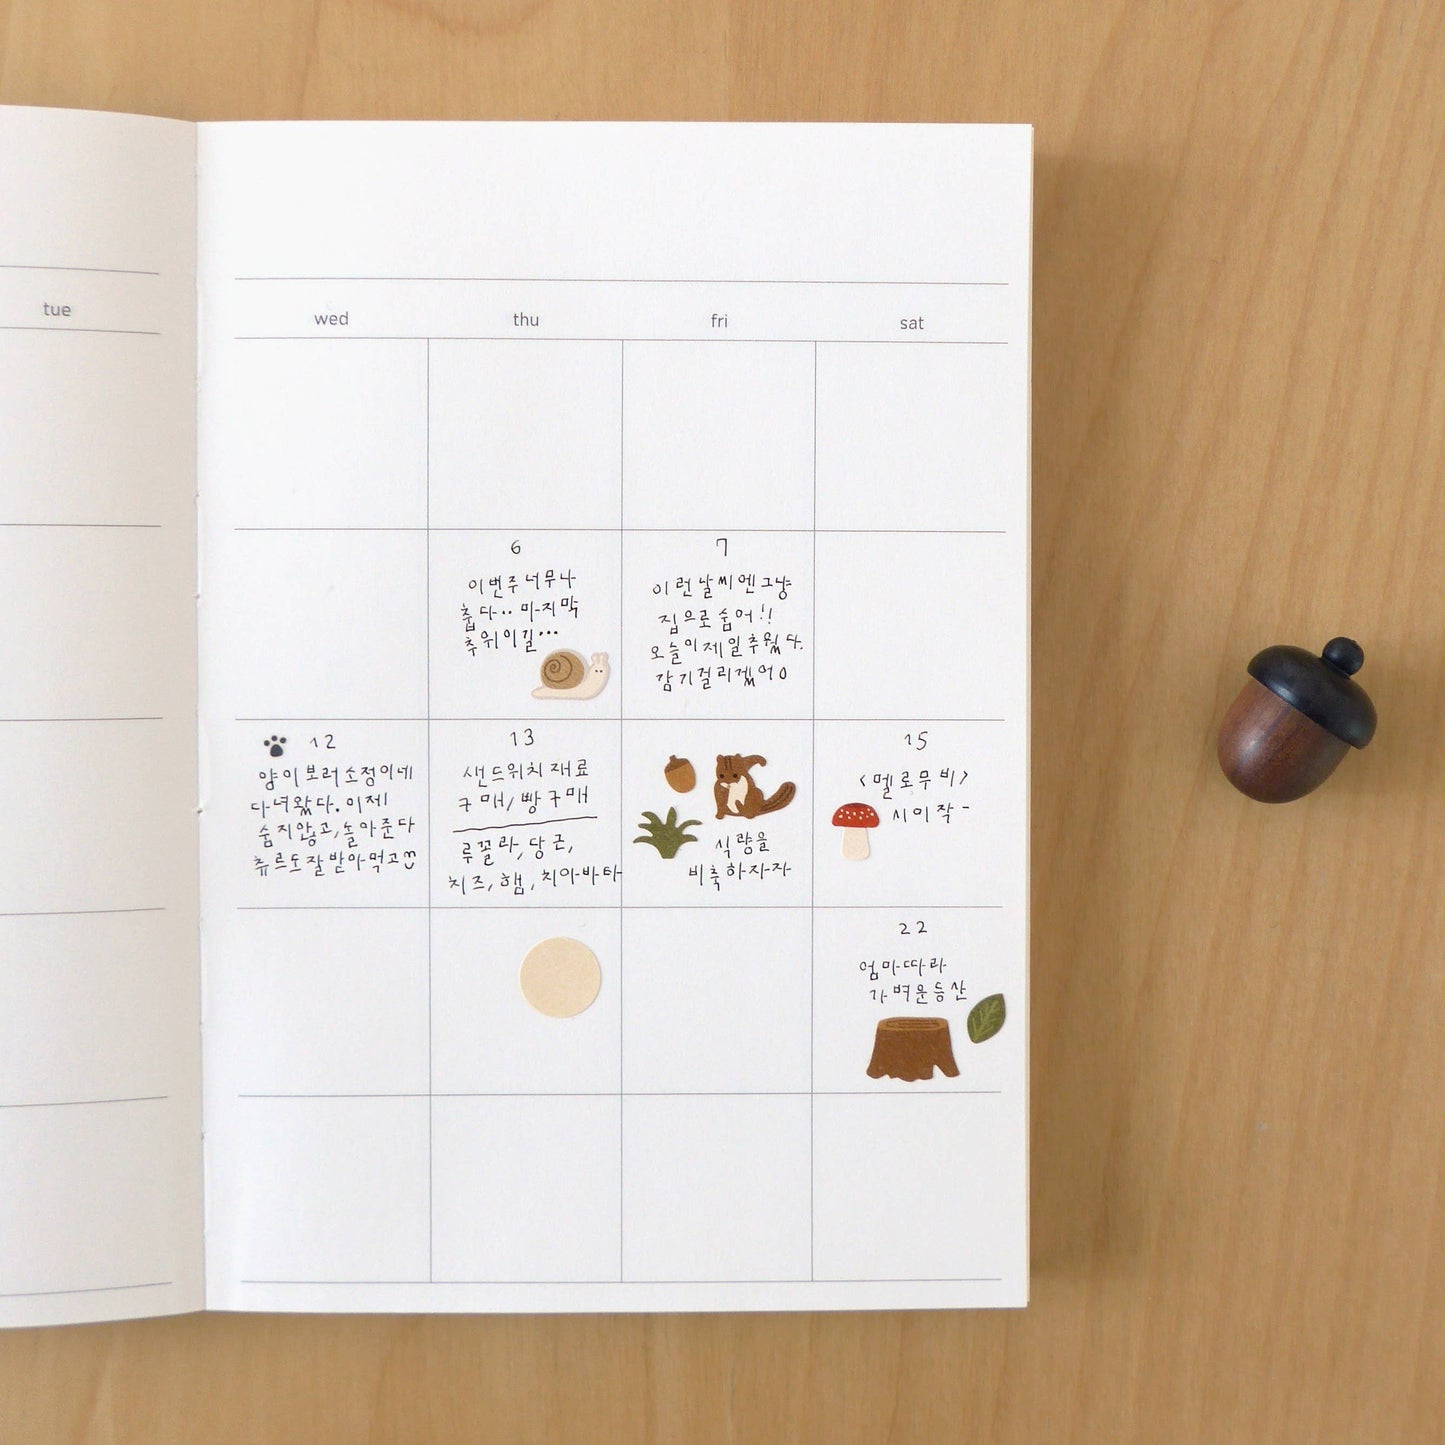 tue
wed
thu
fri
sat
6
이번주 너무나
춥다.. 마지막
추위이길...
7
이런 날씨엔 그냥
집으로 숨어!!
오늘이 제일 추웠다.
감기걸리겠어
12
양이보러 소정이네
다녀왔다. 이제
숨지않고, 놀아준다
츄르도 잘 받아먹고
13
샌드위치 재료
구매/빵구매
루꼴라, 당근,
치즈, 햄, 치아바타
식량을
비축하자자
15
<멜로무비>
시이작-
22
엄마따라
가벼운등산